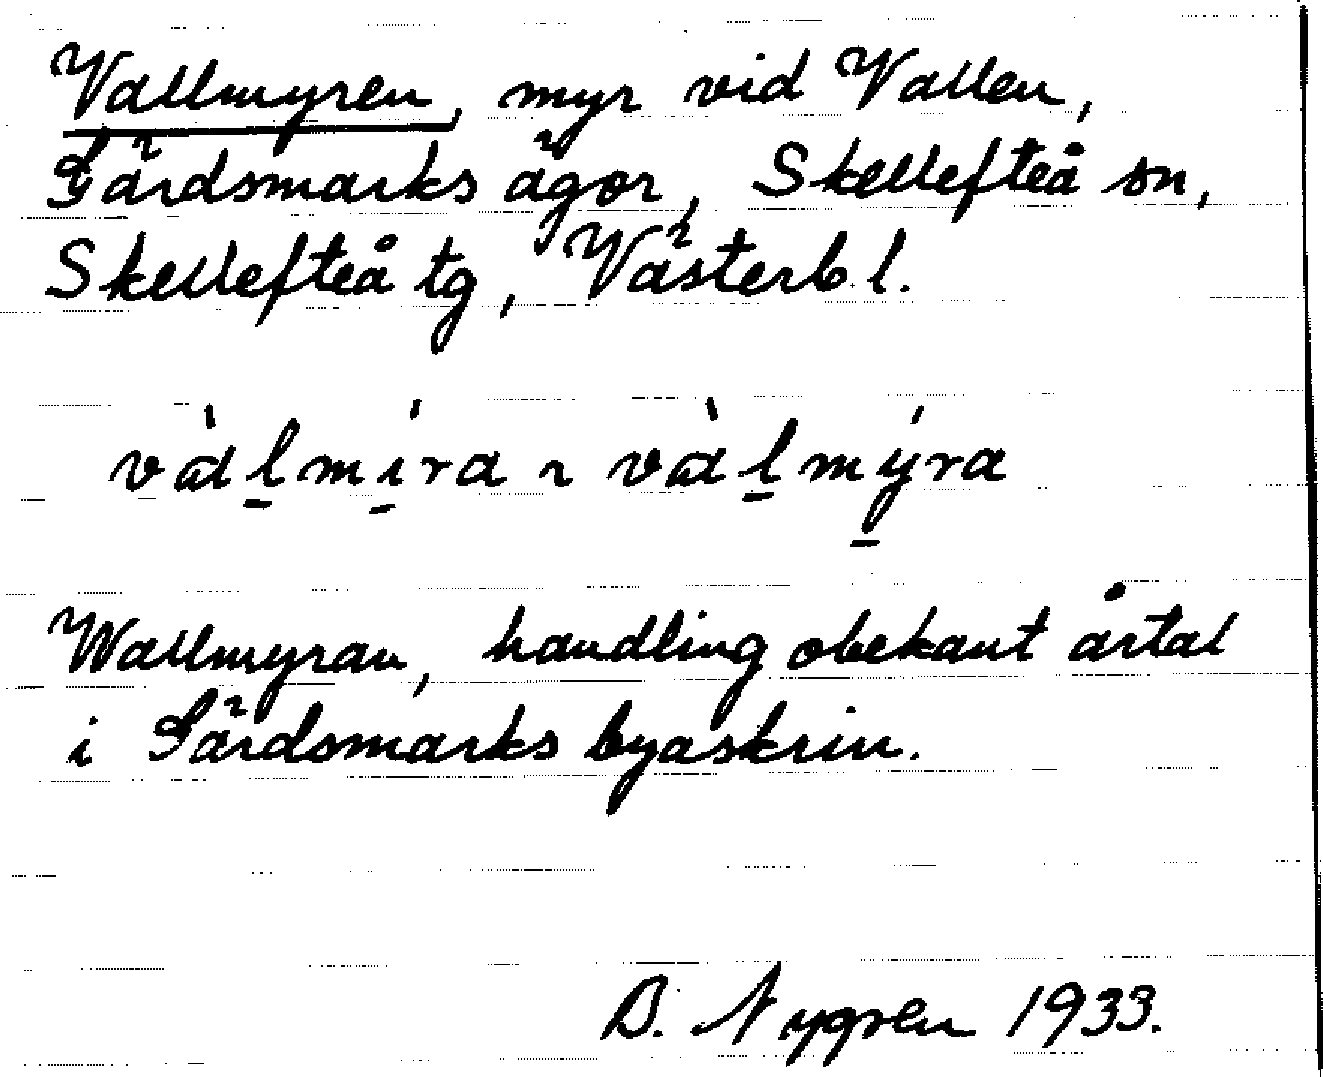 Vallmyren, myr vid Vallen,
Gärdsmarks ägor, Skellefteå sn,
Skellefteå tg, Västerb l.
vàl̠mí̠ra ~ vàl̠mý̠ra
Wallmyran, handling obekant årtal
i Gärdsmarks byaskrin.
B. Nygren 1933.